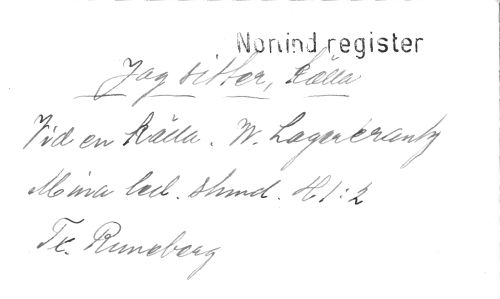 Norlind register
Jag sitter, källa
Vid en källa. W. Lagercrantz
Mina led. stund. H 1:2
Tx. Runeberg